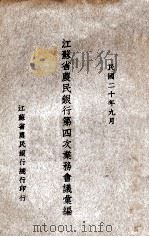 民國二十年九月
江蘇省農民銀行第四次業務會議彙編
江蘇省農民銀行總行印行